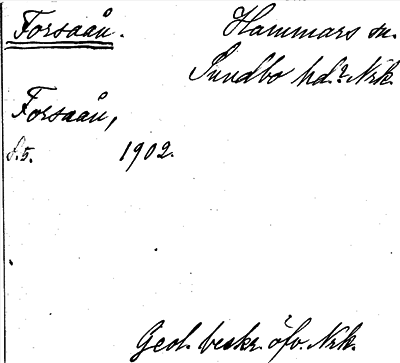 Forsaån.
Hammars sn.
Sundbo hd? Nrk.
Forsaån,
s. 5. 1902.
Geol. beskr. öfv. Nrk.